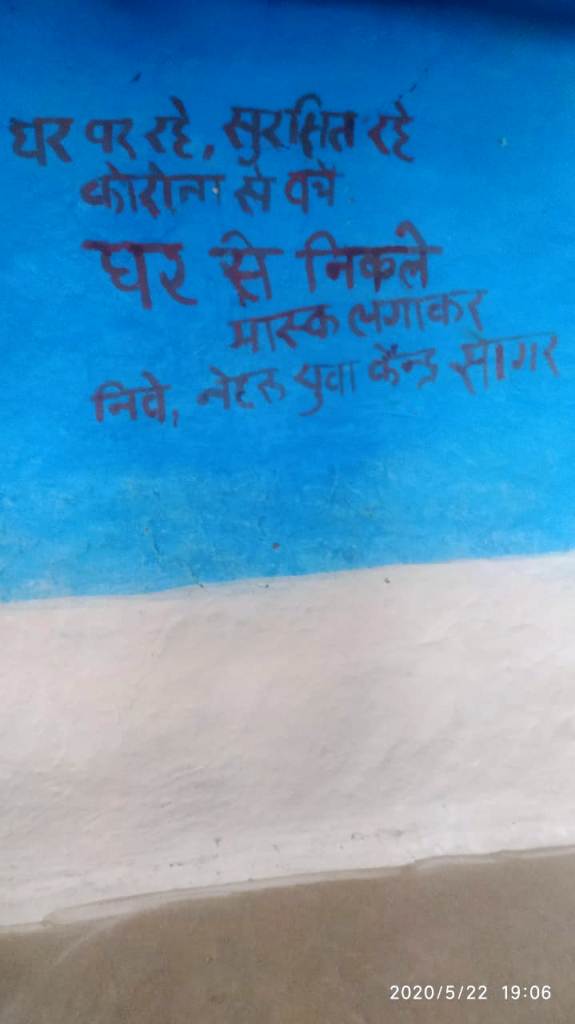 घर पर रहे, सुरक्षित रहे
कोरोना से बचे
घर से निकले
मास्क लगाकर
निवे, नेहरू युवा केन्द्र सागर
2020/5/22 19:06